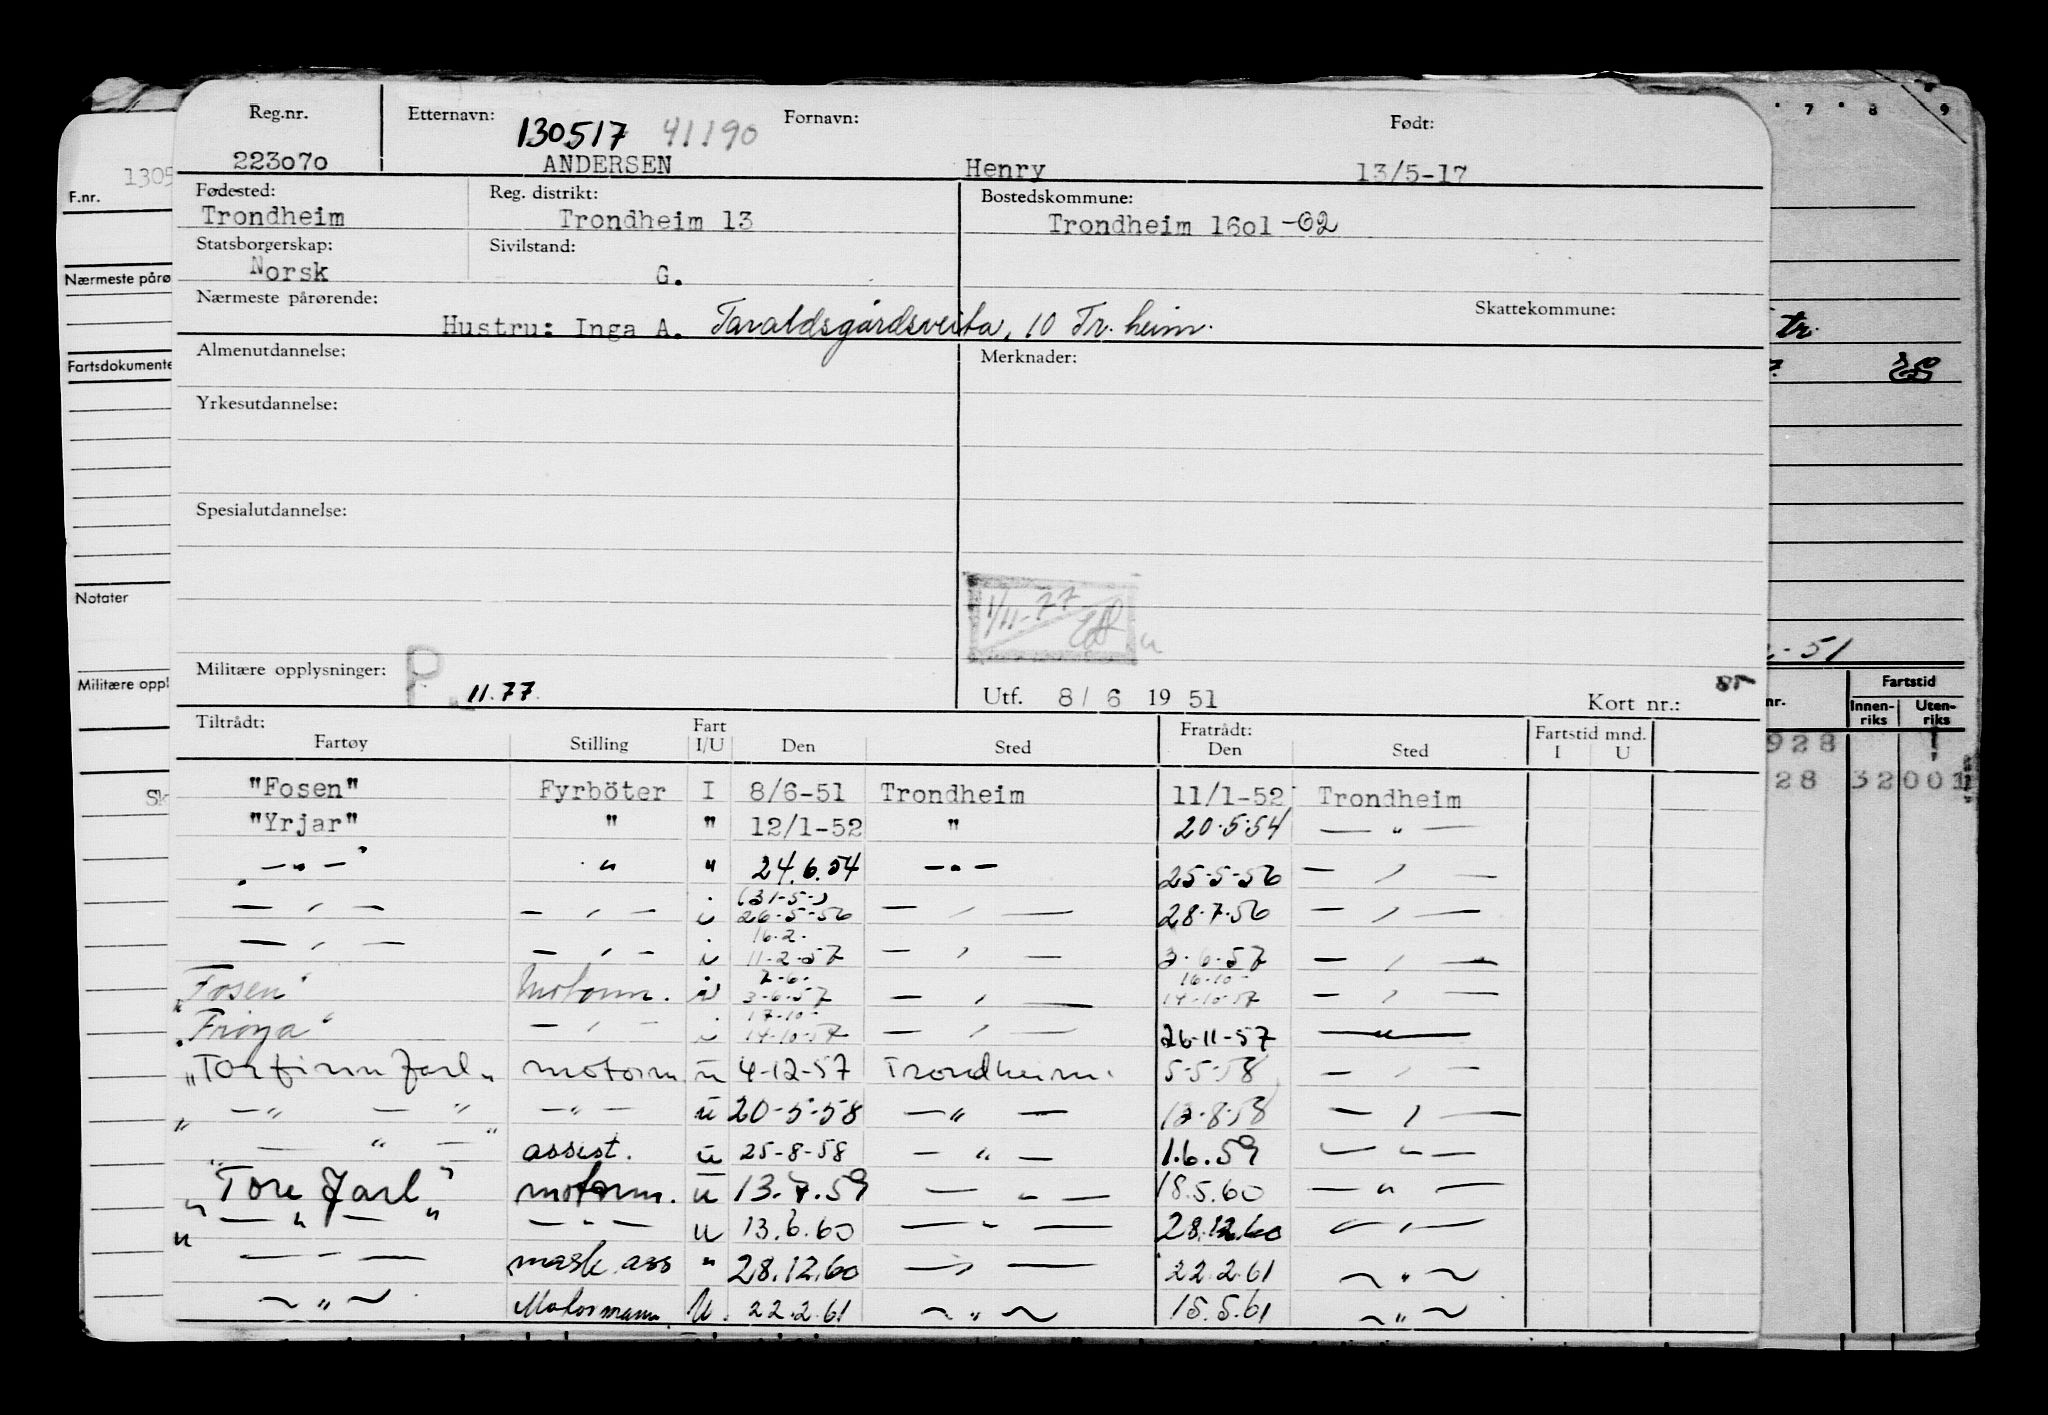 Reg.nr. Etternavn: 130517 41190 Fornavn: Født:
223070 ANDERSEN Henry 13/5-17
Fødested: Reg. distrikt: Bostedskommune:
Trondheim Trondheim 13 Trondheim 1601 -02
Statsborgerskap: Sivilstand:
Norsk G.
Nærmeste pårørende: Skattekommune:
Hustru: Inga A. Taraldsgårdsveita, 10 Tr.heim.
Almenutdannelse: Merknader:
Yrkesutdannelse:
Spesialutdannelse:
1/11-77
Militære opplysninger: P. 11.77. Utf. 8/ 6 19 51 Kort nr.:
Tiltrådt: Fart Fratrådt: Fartstid mnd.
Fartøy Stilling I/U Den Sted Den Sted I U
"Fosen" Fyrböter I 8/6-51 Trondheim 11/1-52 Trondheim
"Yrjar" " " 12/1-52 " 20.5.54 — " —
— " — " " 24.6.54 — " — 25-5-56 — , —
(31-5-)
— , — — , — i 26-5-56 — , — 28.7.56 — , —
16.2.
— , — — , — i 11-2-57 — , — 3.6.57 — , —
7-6- 16-10-
"Fosen" Motorm. i 3-6-57 — , — 14-10-57 — , —
17-10-
"Frøya" — , — i 14-10-57 — , — 26-11-57 — " —
"Torfinn Jarl" motorm u 4-12-57 Trondheim. 5-5-58 — , —
" — " — " — " — u 20-5-58 — " — 13.8.58 — , —
" — " — " assist. u 25-8-58 — " — 1.6.59 — " —
"Tore Jarl" motorm. u 13.7.59 — " — 18.5.60 — " —
" — " — " — " — u 13.6.60 — " — 28.12.60 — , —
" — " — mask.ass " 28.12.60 — , — 22.2.61 ~ " ~
~ " ~ Motormann U. 22.2.61 ~ " ~ 15.5.61 ~ " ~
F.nr. 1305
Nærmeste pårø
Fartsdokumente
Notater
Militære oppl
Sk
7 8 9
tr.
-51
nr. Fartstid
Innen-riks Uten-riks
928
28 32001